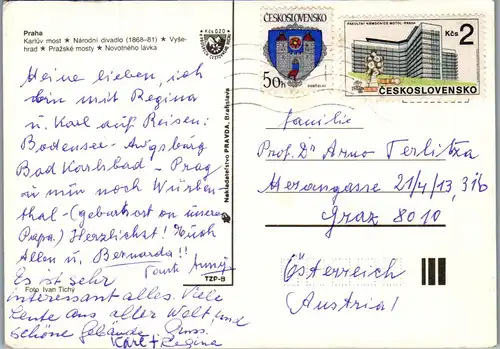 Praha
Karlův most • Národní divadlo (1868–81) • Vyše-
hrad • Pražské mosty • Novotného lávka
Meine lieben, ich
bin mit Regina
u. Karl auf Reisen:
Bodensee – Augsburg
Bad Karlsbad – Prag
u nur noch Würben-
thal – (geburtsort on unserem
Papa.) Herzlichst! Euch
Allen u. Bernarda!!
Tante Anny
Es ist sehr
interessant alles. Viele
Leute aus aller Welt, und
schöne Gebäude. Gruss.
Karl + Regina
Foto Ivan Tichý
TZP-8
Kčs 0,20
Nakladateľstvo PRAVDA, Bratislava
ČESKOSLOVENSKO
50h
FAKULTNÍ NEMOCNICE MOTOL, PRAHA
Kčs 2
ČESKOSLOVENSKO
Familie
Prof. Dr Arno Terlitza
Merangasse 21/4/13, 3 1b
Graz 8010
Österreich
Austria!